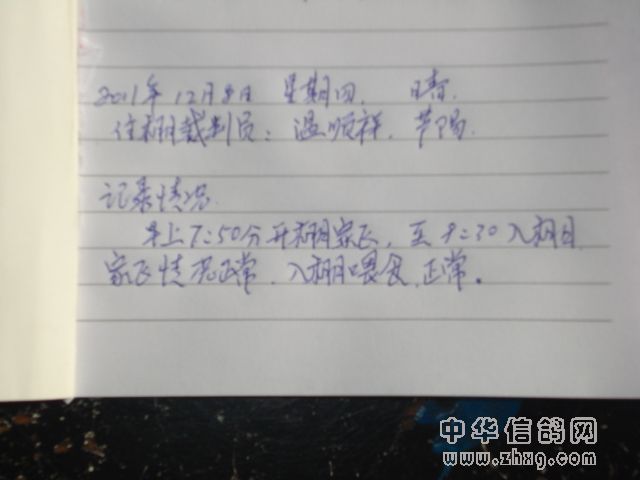 2011年12月8日 星期四. 晴.
住棚裁判员：温顺祥. 芦阳.
记录情况.
早上7:50分开棚家飞，至8:30入棚
家飞情况正常. 入棚喂食正常。
中华信鸽网
www.zhxg.com